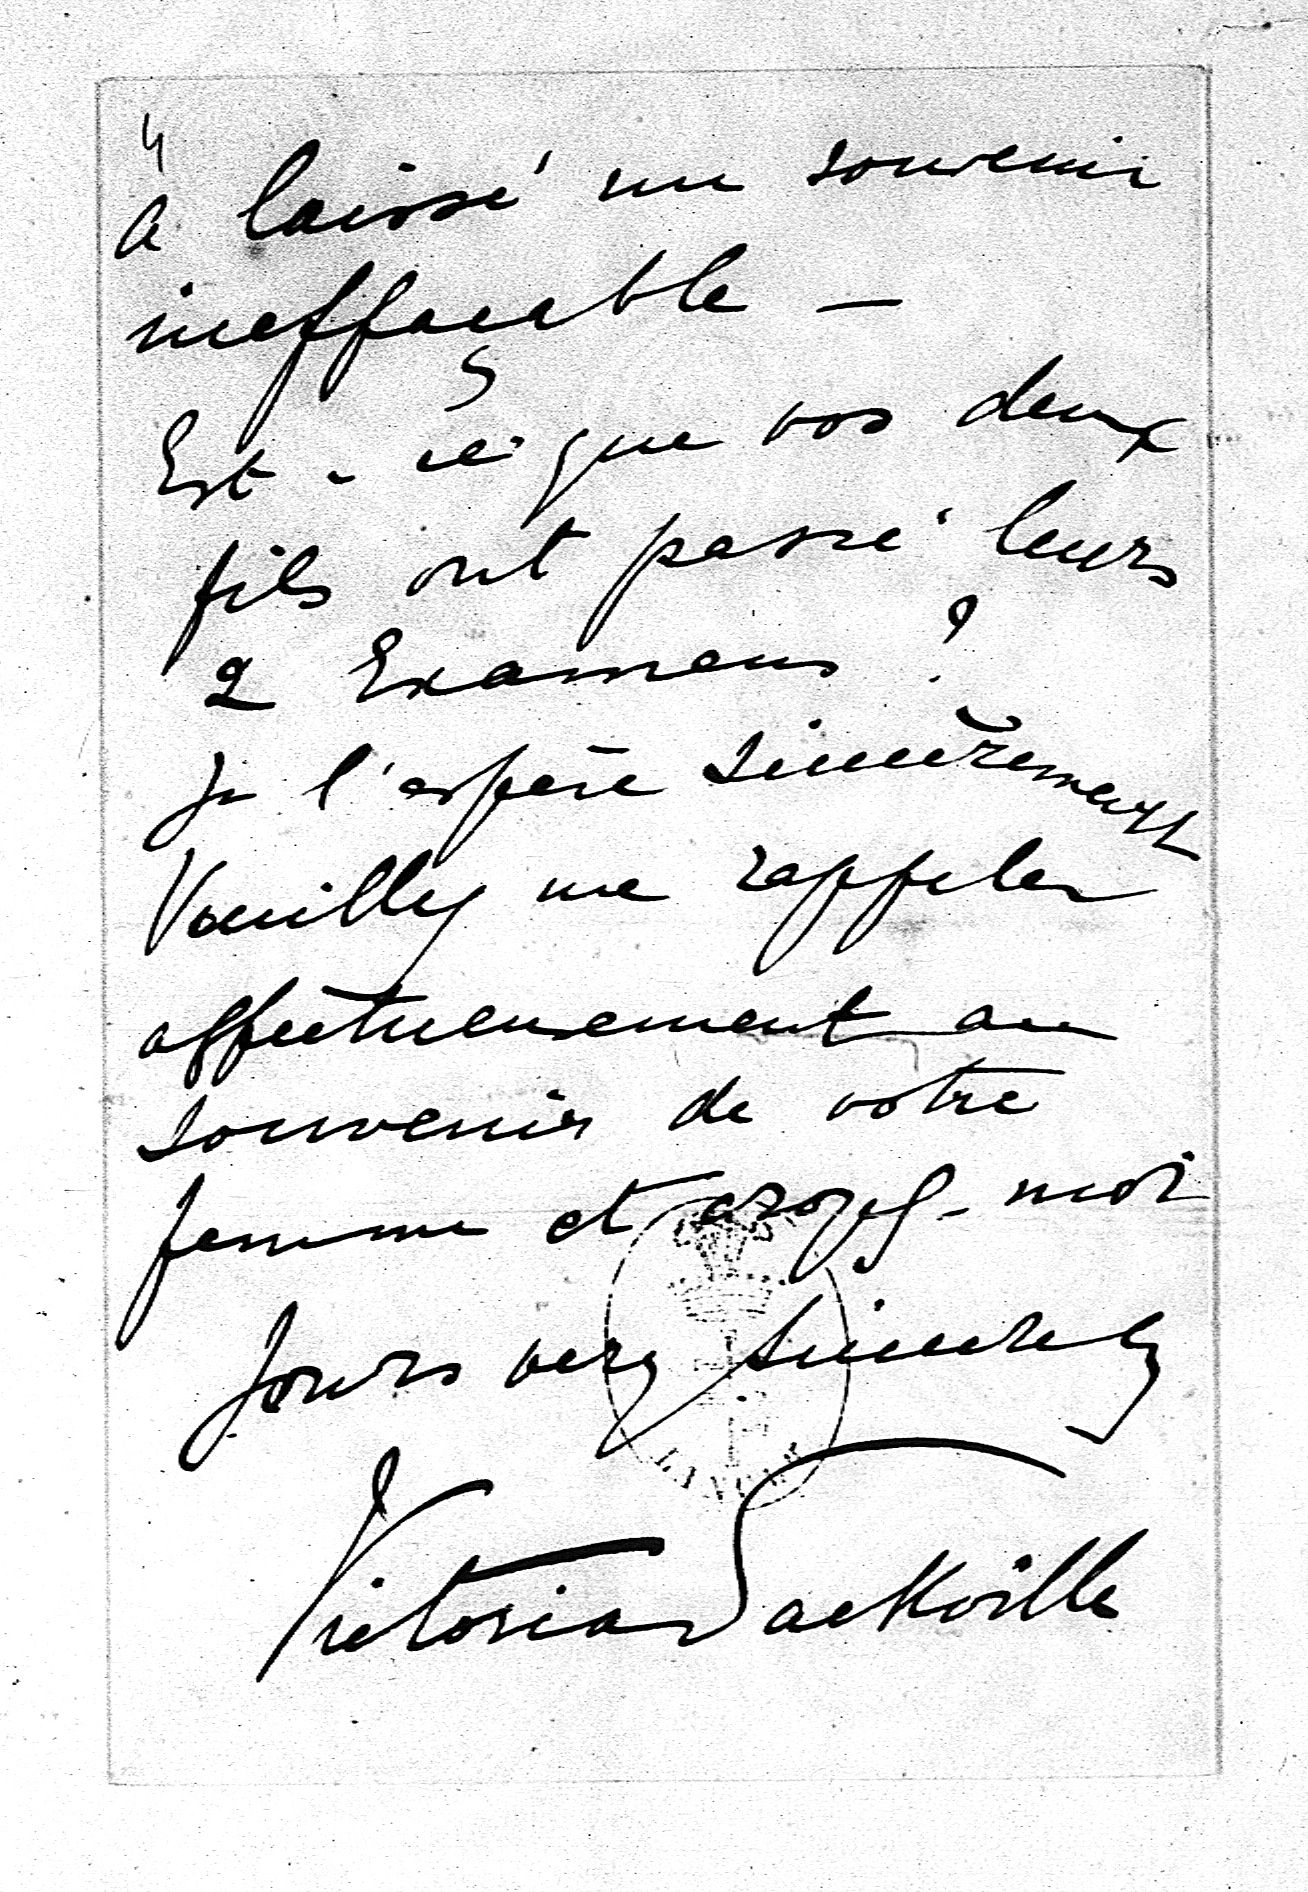 4
a laissé un souvenir
ineffacable –
5
Est-ce que vos deux
fils ont passé leurs
2 Examens ?
Je l'espère sincèrement
Veuillez me rappeler
affectueusement au
souvenir de votre
femme et croyez-moi
Yours very sincerely
Victoria Sackville